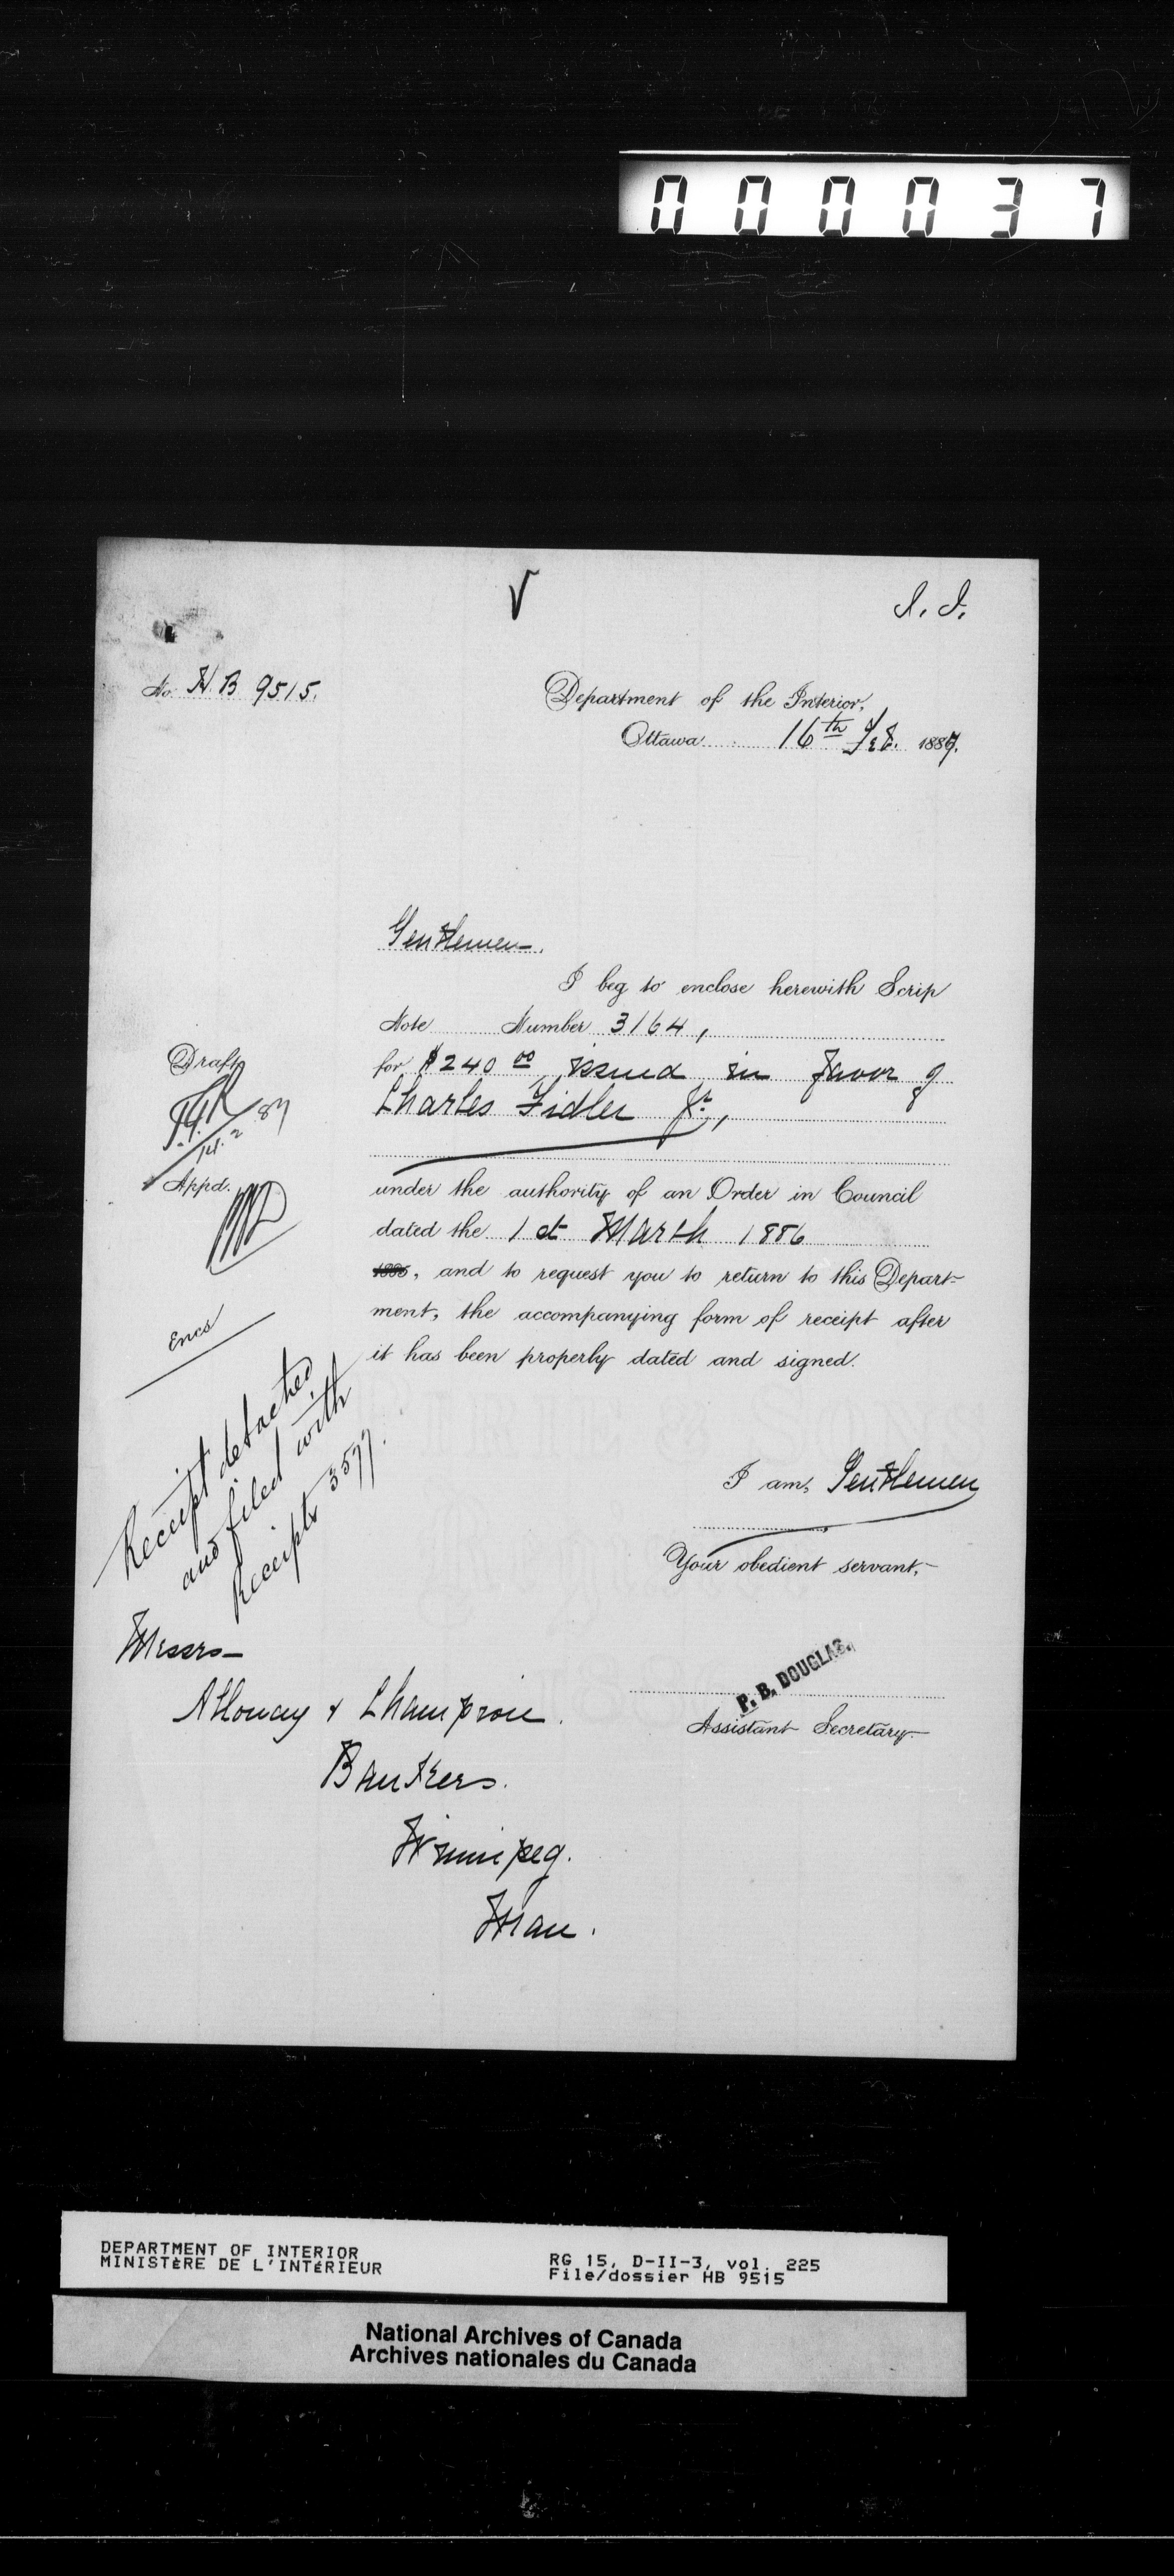 000037
No. H.B. 9515.
Department of the Interior,
Ottawa 16th Feb. 1887.
Gentlemen.
I beg to enclose herewith Scrip
Note Number 3164,
for $240 00 issued in favor of
Charles Fidler Jr.,
under the authority of an Order in Council
dated the 1st March 1886
1886, and to request you to return to this Depart-
ment, the accompanying form of receipt after
it has been properly dated and signed.
Draft
14.2.87
Appd.
Encs
Receipt detached
and filed with
Receipts 3577.
I am, Gentlemen
Your obedient servant,
P. B. DOUGLAS.
Assistant Secretary.
Messrs
Alloway & Champion.
Bankers.
Winnipeg.
Man.
DEPARTMENT OF INTERIOR
MINISTÈRE DE L'INTÉRIEUR
RG 15, D-II-3, vol. 225
File/dossier HB 9515
National Archives of Canada
Archives nationales du Canada